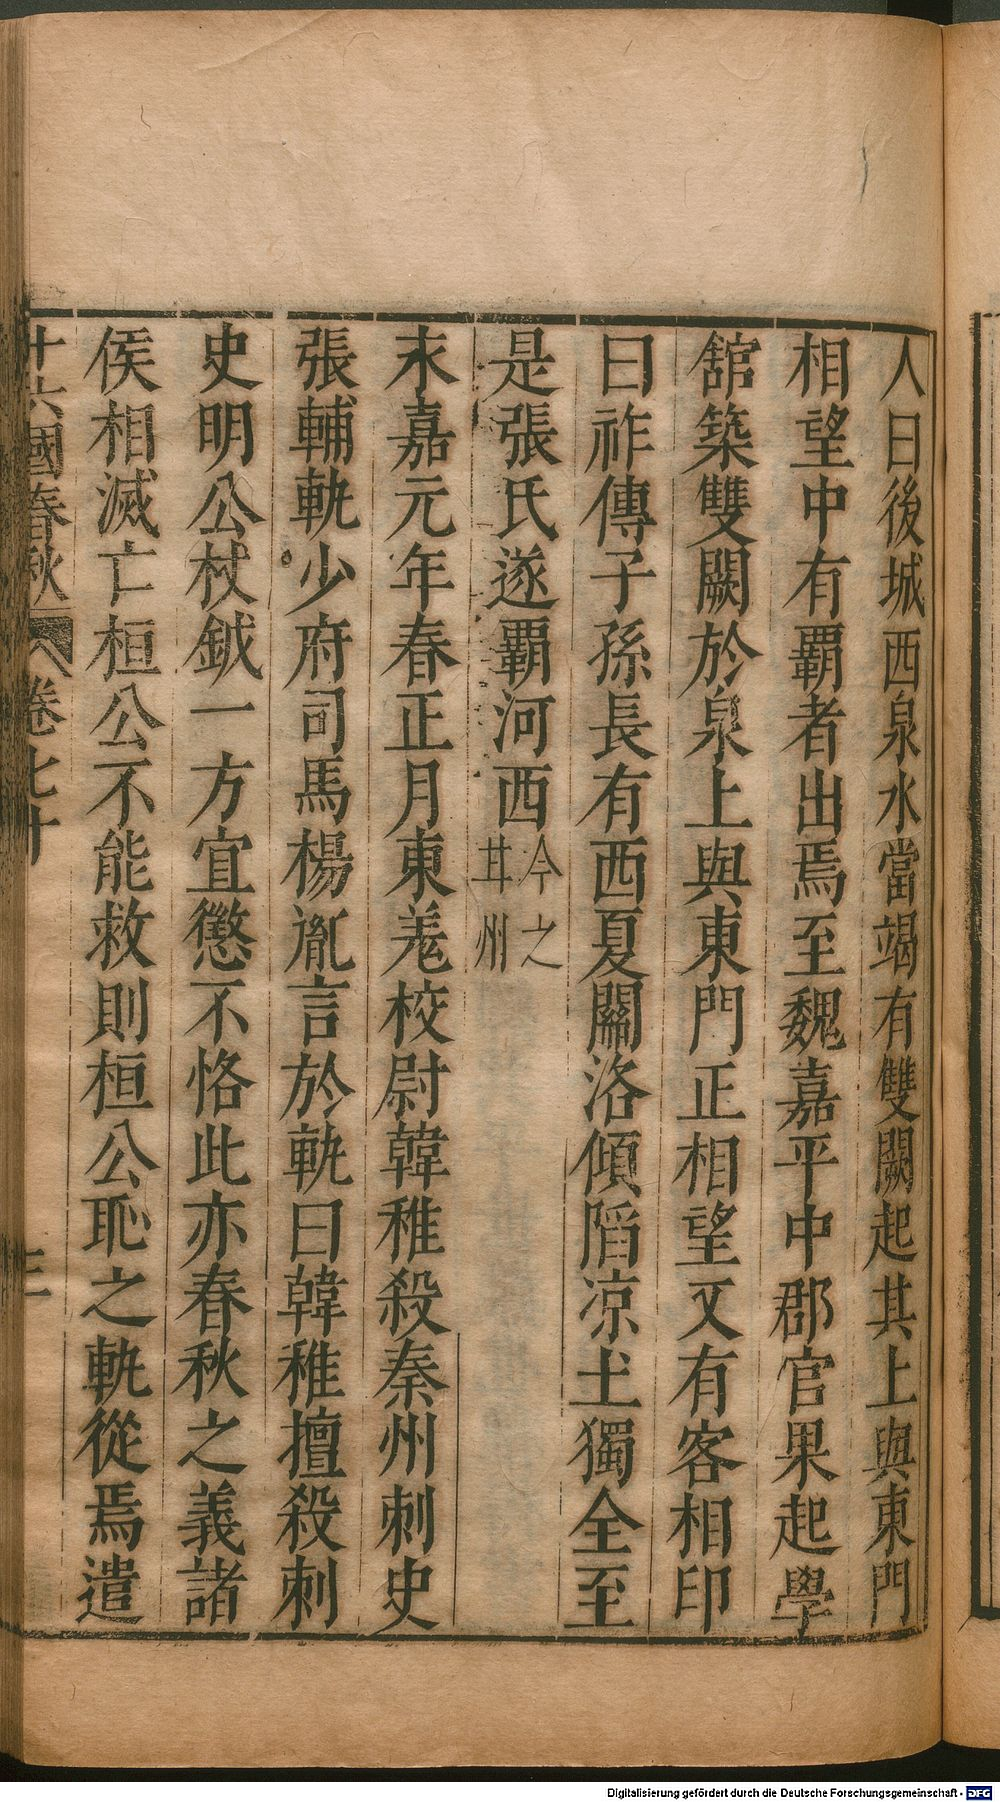 人曰後城西泉水當竭有雙闕起其上與東門
相望中有霸者出焉至魏嘉平中郡官果起學
舘築雙闕於泉上與東門正相望又有客相印
曰祚傳子孫長有西夏關洛傾陷凉土獨全至
是張氏遂霸河西今之甘州
永嘉元年春正月東羌校尉韓稚殺秦州刺史
張輔軌少府司馬楊胤言於軌曰韓稚擅殺刺
史明公杖鉞一方宜懲不恪此亦春秋之義諸
侯相滅亡桓公不能救則桓公恥之軌從焉遣
十六國春秋 卷七十 三
Digitalisierung gefördert durch die Deutsche Forschungsgemeinschaft - DFG